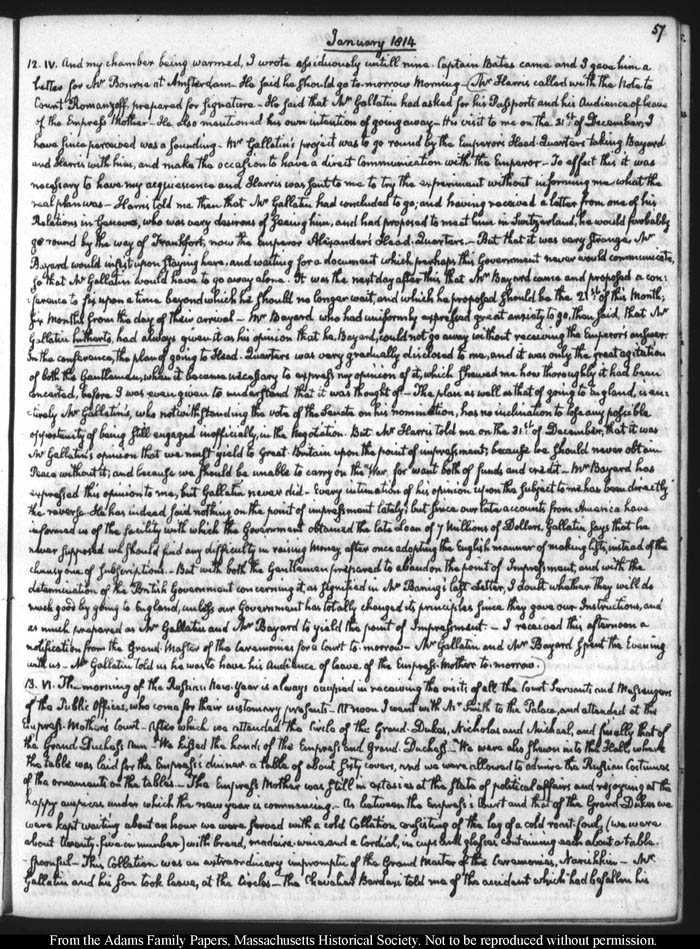 57
January 1814
12. IV. And my chamber being warmed, I wrote assiduously untill nine. Captain Bates came and I gave him a
Letter for Mr Bourne at Amsterdam - He said he should go to-morrow Morning - Mr Harris called with the Note to
Count Romanzoff, prepared for signature - He said that Mr Gallatin had asked for his Passports and his Audience of leave
of the Empress Mother - He also mentioned his own intention of going away - His visit to me on the 31st of December, I
have since perceived was a sounding - Mr Gallatin's project was to go round by the Emperor's Head-Quarters taking Bayard
and Harris with him, and make the occasion to have a direct Communication with the Emperor - To effect this it was
necessary to have my acquiescence and Harris was sent to me to try the experiment without informing me what the
real plan was - Harris told me then that Mr Gallatin had concluded to go; and having received a letter from one of his
Relations in Geneva, who was very desirous of seeing him, and had proposed to meet him in Switzerland, he would probably
go round by the way of Frankfort, now the Emperor Alexander's Head-Quarters. - But that it was very strange, Mr
Bayard would insist upon staying here, and waiting for a document which perhaps this Government never would communicate,
so that Mr Gallatin would have to go away alone. It was the next day after this that Mr Bayard came and proposed a con-
-ference to fix upon a time beyond which he should no longer wait, and which he proposed should be the 21st of this Month;
six Months from the day of their arrival - Mr Bayard who had uniformly expressed great anxiety to go, then said that Mr
Gallatin hitherto, had always given it as his opinion that he, Bayard, could not go away without receiving the Emperor's answer.
In the conference, the plan of going to Head-Quarters was very gradually disclosed to me, and it was only the great agitation
of both the Gentlemen, when it became necessary to express my opinion of it, which shewed me how thoroughly it had been
concerted, before I was even given to understand that it was thought of - The plan as well as that of going to England, is en-
-tirely Mr Gallatin's, who notwithstanding the vote of the Senate on his nomination, has no inclination to lose any possible
opportunity of being still engaged inofficially, in the Negotiation. But Mr Harris told me on the 31st of December, that it was
Mr Gallatin's opinion that we must yield to Great-Britain upon the point of impressment; because we should never obtain
Peace without it; and because we should be unable to carry on the War, for want both of funds and credit - Mr Bayard has
expressed this opinion to me, but Gallatin never did - Every intimation of his opinion upon the subject to me has been directly
the reverse - He has indeed said nothing on the point of impressment lately; but since our late accounts from America have
informed us of the facility with which the Government obtained the late Loan of 7 Millions of Dollars, Gallatin says that he
never supposed we should find any difficulty in raising Money, after once adopting the English manner of making lists, instead of the
clumsy one of Subscriptions. - But with both the Gentlemen prepared to abandon the point of Impressment, and with the
determination of the British Government concerning it, as signified in Mr Baring's last Letter, I doubt whether they will do
much good by going to England, unless our Government has totally changed its principles since they gave our Instructions, and
as much prepared as Mr Gallatin and Mr Bayard to yield the point of Impressment - I received this afternoon a
notification from the Grand Master of the Ceremonies for a Court to-morrow - Mr Gallatin and Mr Bayard spent the Evening
with us - Mr Gallatin told us he was to have his Audience of leave of the Empress-Mother to-morrow.
13. V. The morning of the Russian New-Year is always occupied in receiving the visits of all the Court Servants, and Messengers
of the Public Offices, who come for their customary presents - At noon I went with Mr Smith to the Palace, and attended at the
Empress-Mother's Court - After which we attended the Circle of the Grand-Dukes, Nicholas and Michael, and finally that of
the Grand-Duchess Ann - We kissed the hands of the Empress and Grand-Duchess - We were also shewn into the Hall, where
the table was laid for the Empress's dinner - a table of about sixty covers, and we were allowed to admire the Russian Costumes
of the ornaments on the tables - The Empress Mother was still in extasies at the state of political affairs and rejoycing at the
happy auspices under which the new year is commencing - As between the Empress's Court and that of the Grand Dukes we
were kept waiting about an hour we were served with a cold Collation consisting of the leg of a cold roast-fowl, (we were
about twenty-five in number) with bread, madeira-wine, and a Cordial, in cups and glasses containing each about a table-
-spoonful - This Collation was an extraordinary impromptu of the Grand Master of the Ceremonies, Narishkin - Mr
Gallatin and his Son took leave, at the Circles - The Chevalier Bardaxi told me of the accident which had befallen his
From the Adams Family Papers, Massachusetts Historical Society. Not to be reproduced without permission.